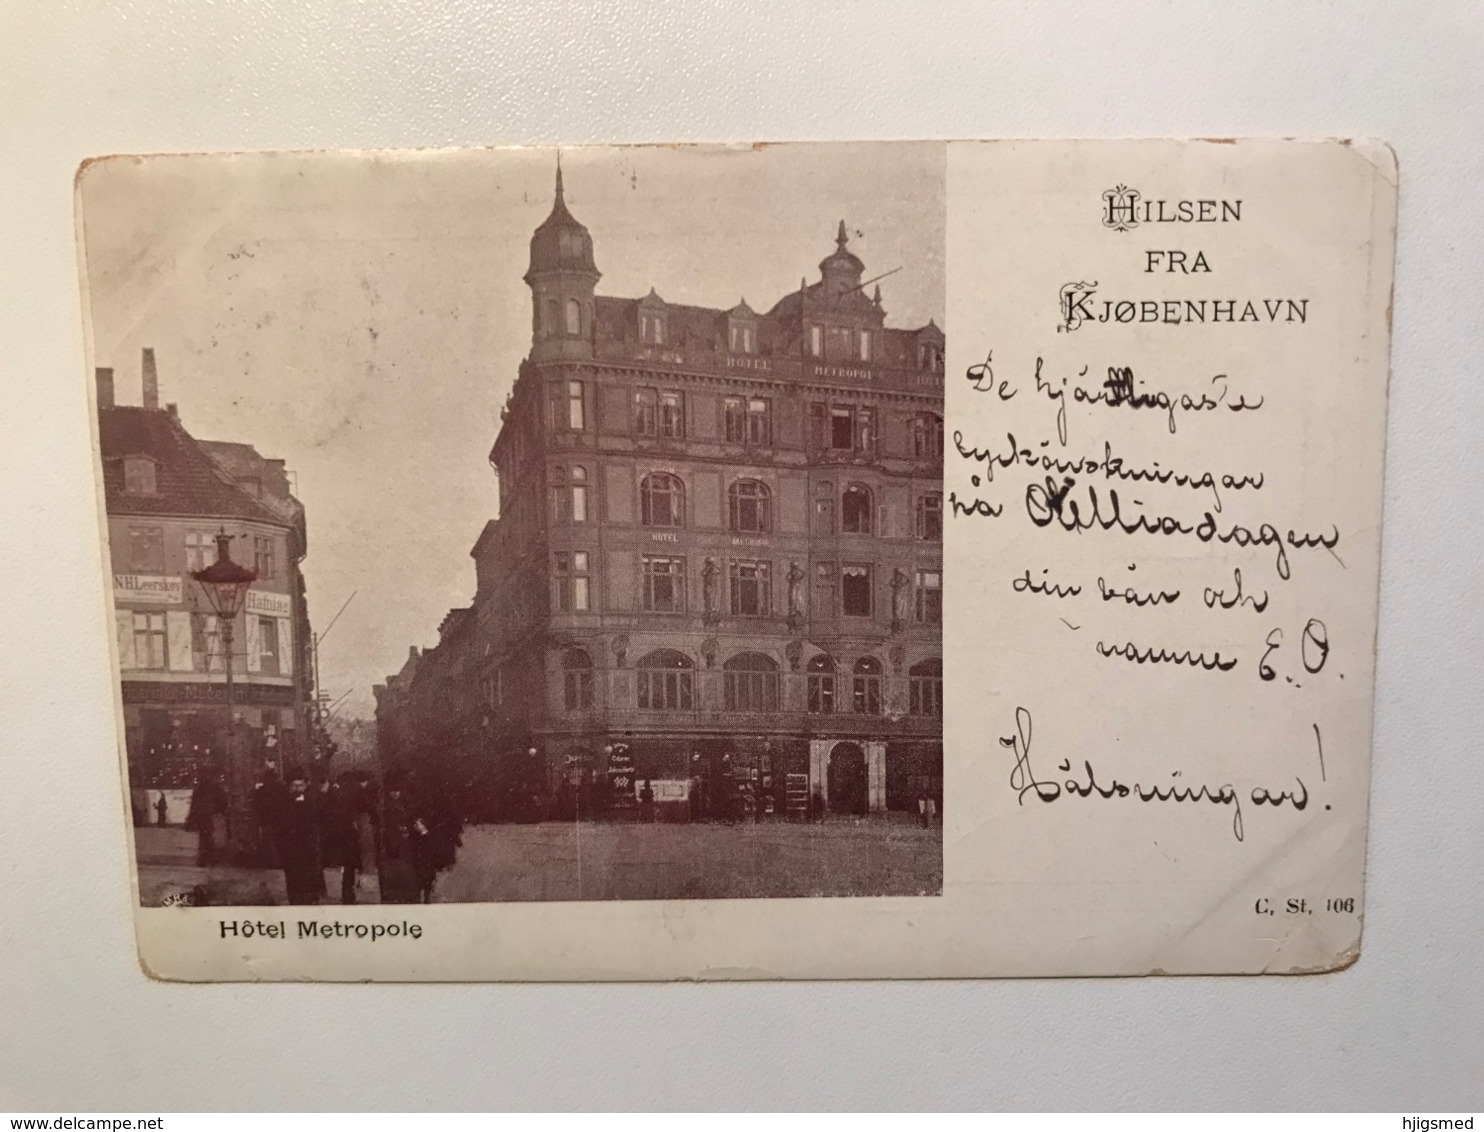 HILSEN
FRA
KJØBENHAVN
De hjärtligaste
lyckönskningar
på Olilliadagen
din vän och
namne E. O.
Hälsningar!
HOTEL METROPOL HOTE
HOTEL METROPOL
N.H.Leerskov
Hafnias
Hôtel Metropole
C. St. 106
www.delcampe.net
hjlgsmed